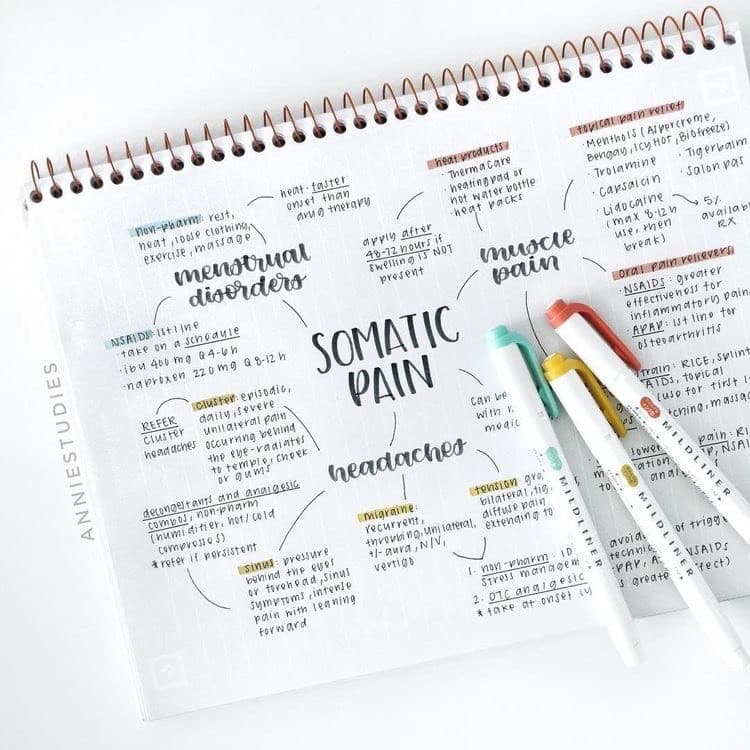 ANNIESTUDIES
SOMATIC
PAIN
menstrual
disorders
non-pharm: rest,
heat, loose clothing,
exercise, massage
heat: faster
onset than
drug therapy
NSAIDS: 1st line
take on a schedule
· ibu 400 mg Q 4-6 h
· naproxen 220 mg Q 8-12 h
muscle
pain
heat products
· ThermaCare
· heating pad or
hot water bottle
· heat packs
apply after
48-72 hours if
swelling is NOT
present
topical pain relief
· Menthols (Aspercreme,
Bengay, Icy Hot, Biofreeze)
· Trolamine
· Capsaicin
· Lidocaine
(max 8-12 h
use, then
break)
· Tigerbalm
· Salonpas
5%
available
RX
oral pain relievers
· NSAIDS: greater
effectiveness for
inflammatory pain
· APAP: 1st line for
osteoarthritis
train: RICE, splint
topical
use for first
massa
lower pain:
headaches
cluster: episodic,
daily, severe
unilateral pain
occurring behind
the eye-radiates
to temple, cheek
or gums
REFER
cluster
headaches
decongestants and analgesic
combos, non-pharm
(humidifier, hot/cold
compresses)
* refer if persistent
sinus: pressure
behind the eyes
or forehead, sinus
symptoms, intense
pain with leaning
forward
migraine:
recurrent,
throbbing, unilateral,
+/- aura, N/V,
vertigo
tension:
bilateral,
diffuse pain
extending to
1. non-pharm:
stress manage
2. OTC analgesic
* take at onset
can be
with
medic
avoid of trigg
techni NSAIDS
greate effect)
MILDLINER
MILDLINER
MILDLINER